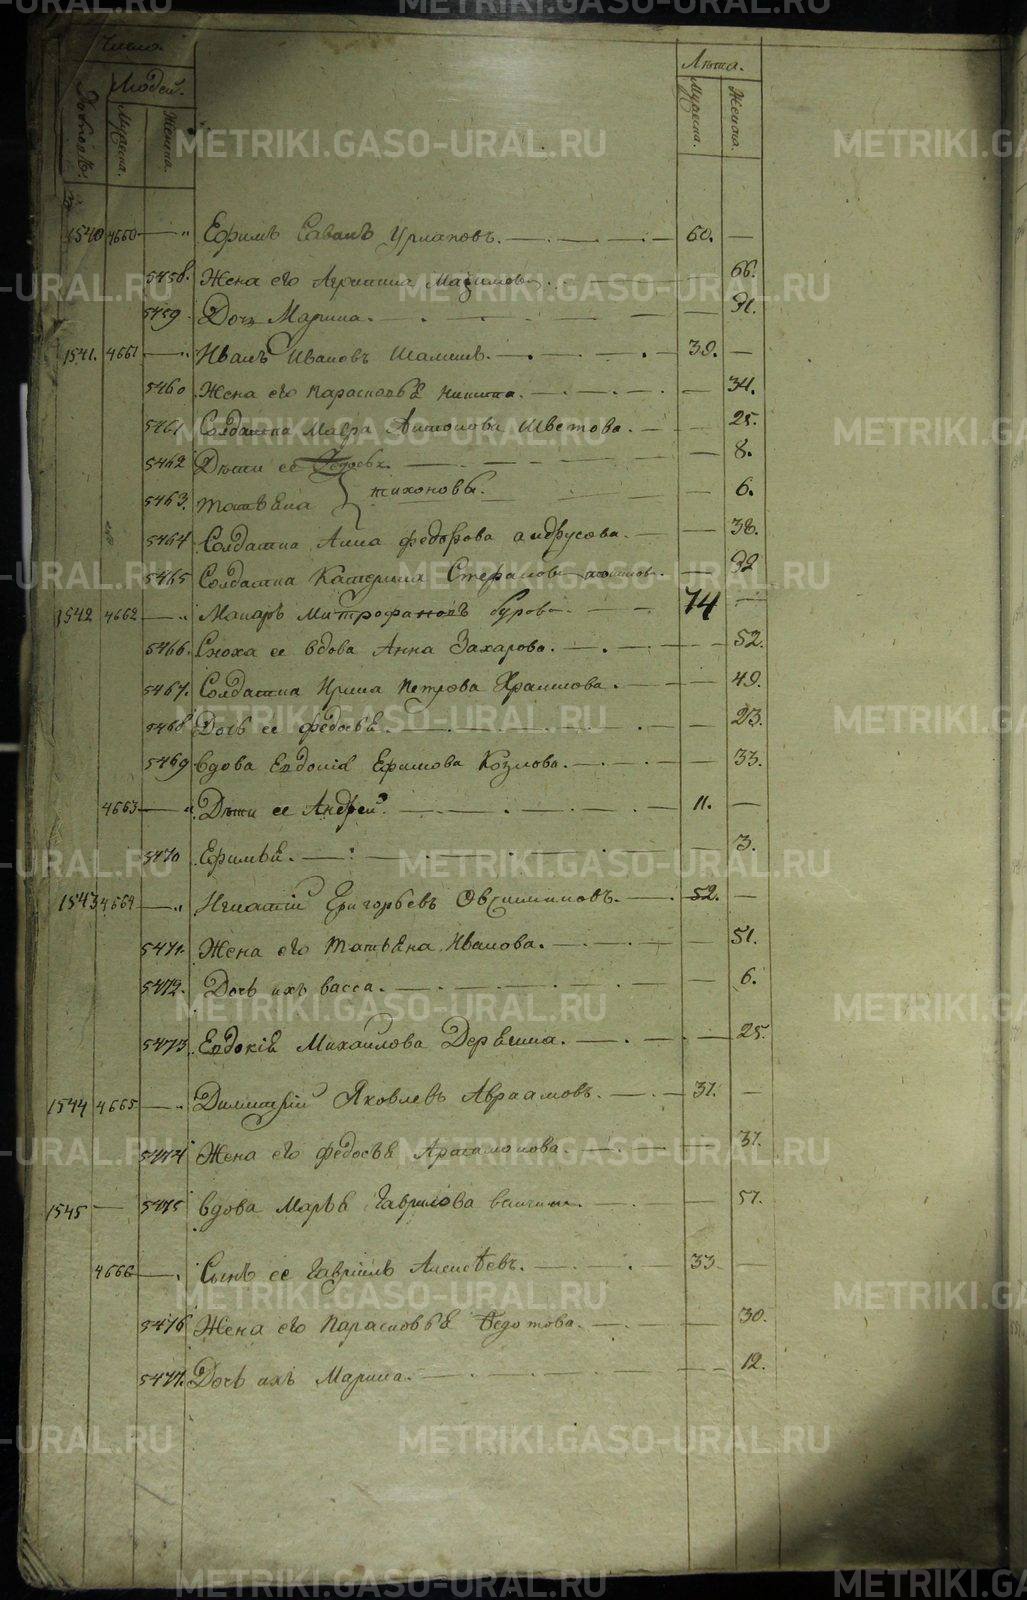 Число.
Людей.
Лѣта.
Мужеска.
Женска.
Мужеска.
Женска.
1540 4660 — „ Ефимъ Савинъ — 60. —
5458. Жена его Максимова — 66.
5459. Дочь Марина. — 31.
1541. 4661 — „ Иванъ Ивановъ — 39. —
5460 Жена его Парасковья — 34.
5461 Солдатка Мавра Антонова Шветова. — 25.
5462 Дѣти ее Федосья. — 8.
5463. Татьяна } Тихоновы. — 6.
5464 Солдатка Анна Федорова Андрусова. — 38.
5465 Солдатка Катерина — 32
1542 4662 — „ Макаръ Митрофановъ Гурова — 74 —
5466. Сноха ее вдова Анна Захарова. — 52.
5467. Солдатка Ирина Петрова Храмцова. — 49.
5468 Дочь ее Федосья. — 23.
5469 Вдова Евдокія Ефимова Козлова. — 33.
4663 — „ Дѣти ее Андрей — 11. —
5470 Ефимья. — 3.
1543 4664 — „ Игнатій Григорьевъ — 52. —
5471. Жена его Татьяна Иванова. — 51.
5472. Дочь ихъ Васса. — 6.
5473. Евдокія Михайлова — 25.
1544 4665 — „ Димитрій Яковлевъ Авраамовъ. — 37. —
5474 Жена его Федосья Артамонова. — 37.
1545 — 5475 Вдова Марья Гаврилова — 57.
4666 — „ Сынъ ее Гавріилъ Алексѣевъ. — 33 —
5476 Жена его Парасковья Федотова. — 30.
5477. Дочь ихъ Марина. — 12.
METRIKI.GASO-URAL.RU